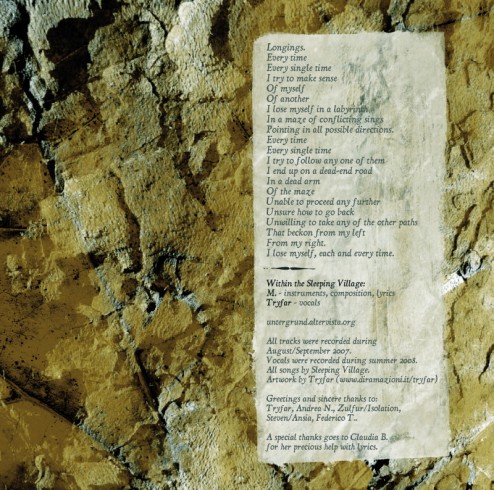 Longings.
Every time
Every single time
I try to make sense
Of myself
Of another
I lose myself in a labyrinth
In a maze of conflicting sings
Pointing in all possible directions.
Every time
Every single time
I try to follow any one of them
I end up on a dead-end road
In a dead arm
Of the maze
Unable to proceed any further
Unsure how to go back
Unwilling to take any of the other paths
That beckon from my left
From my right.
I lose myself, each and every time.
Within the Sleeping Village:
M. - instruments, composition, lyrics
Tryfar - vocals
untergrund.altervista.org
All tracks were recorded during
August/September 2007.
Vocals were recorded during summer 2008.
All songs by Sleeping Village.
Artwork by Tryfar (www.diramazioni.it/tryfar)
Greetings and sincere thanks to:
Tryfar, Andrea N., Zulfur/Isolation,
Steven/Ansia, Federico T..
A special thanks goes to Claudia B.
for her precious help with lyrics.